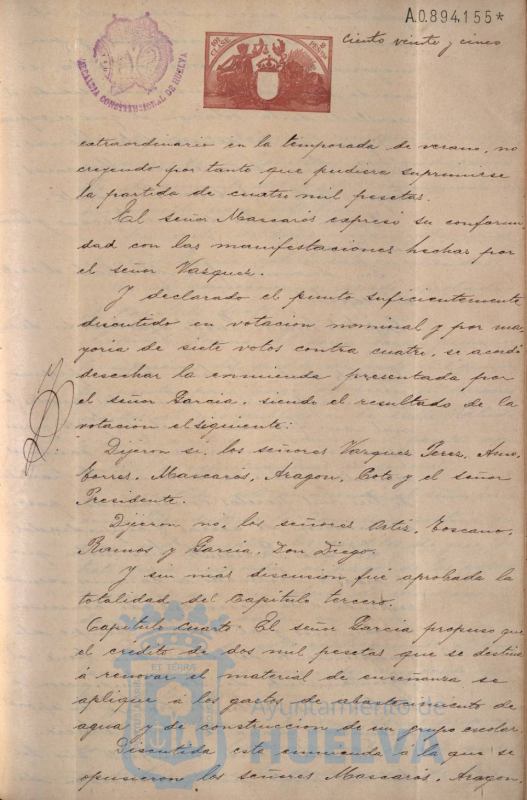 A.0.894,155*
ciento veinte y cinco
ALCALDIA CONSTITUCIONAL DE HUELVA
extraordinario en la temporada de verano, no
creyendo por tanto que pudiera suprimirse
la partida de cuatro mil pesetas.
El señor Mascarós expresó su conformi-
dad con las manifestaciones hechas por
el señor Vazquez.
Y declarado el punto suficientemente
discutido en votacion nominal y por ma
yoria de siete votos contra cuatro, se acordó
desechar la enmienda presentada por
el señor Garcia, siendo el resultado de la
votacion el siguiente:
Dijeron si, los señores Vazquez Perez,
Torres, Mascarós, Aragon, Coto y el señor
Presidente.
Dijeron no, los señores Ortiz, Toscano,
Ramos y Garcia, Don Diego.
Y sin más discusion fué aprobada la
totalidad del Capitulo tercero.
Capitulo cuarto. El señor Garcia propuso que
el crédito de dos mil pesetas que se destina
á renovar el material de enseñanza se
aplique á los gastos de abastecimiento de
agua y de construccion de un grupo escolar.
Discutida esta enmienda á la que se
opusieron los señores Mascarós, Aragon,
Ayuntamiento de
HUELVA